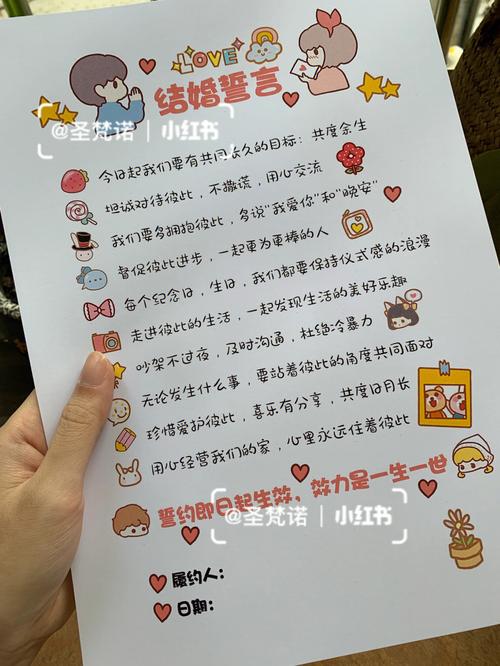 LOVE
结婚誓言
@圣梵诺 | 小红书
今日起我们要有共同长久的目标：共度余生
坦诚对待彼此，不撒谎，用心交流
我们要多拥抱彼此，多说“我爱你”和“晚安”
督促彼此进步，一起更为更棒的人
每个纪念日，生日，我们都要保持仪式感的浪漫
走进彼此的生活，一起发现生活的美好乐趣
吵架不过夜，及时沟通，杜绝冷暴力
无论发生什么事，要站着彼此的角度共同面对
珍惜爱护彼此，喜乐有分享，共度日月长
用心经营我们的家，心里永远住着彼此
誓约即日起生效，效力是一生一世
@圣梵诺 | 小红书
履约人：
日期：